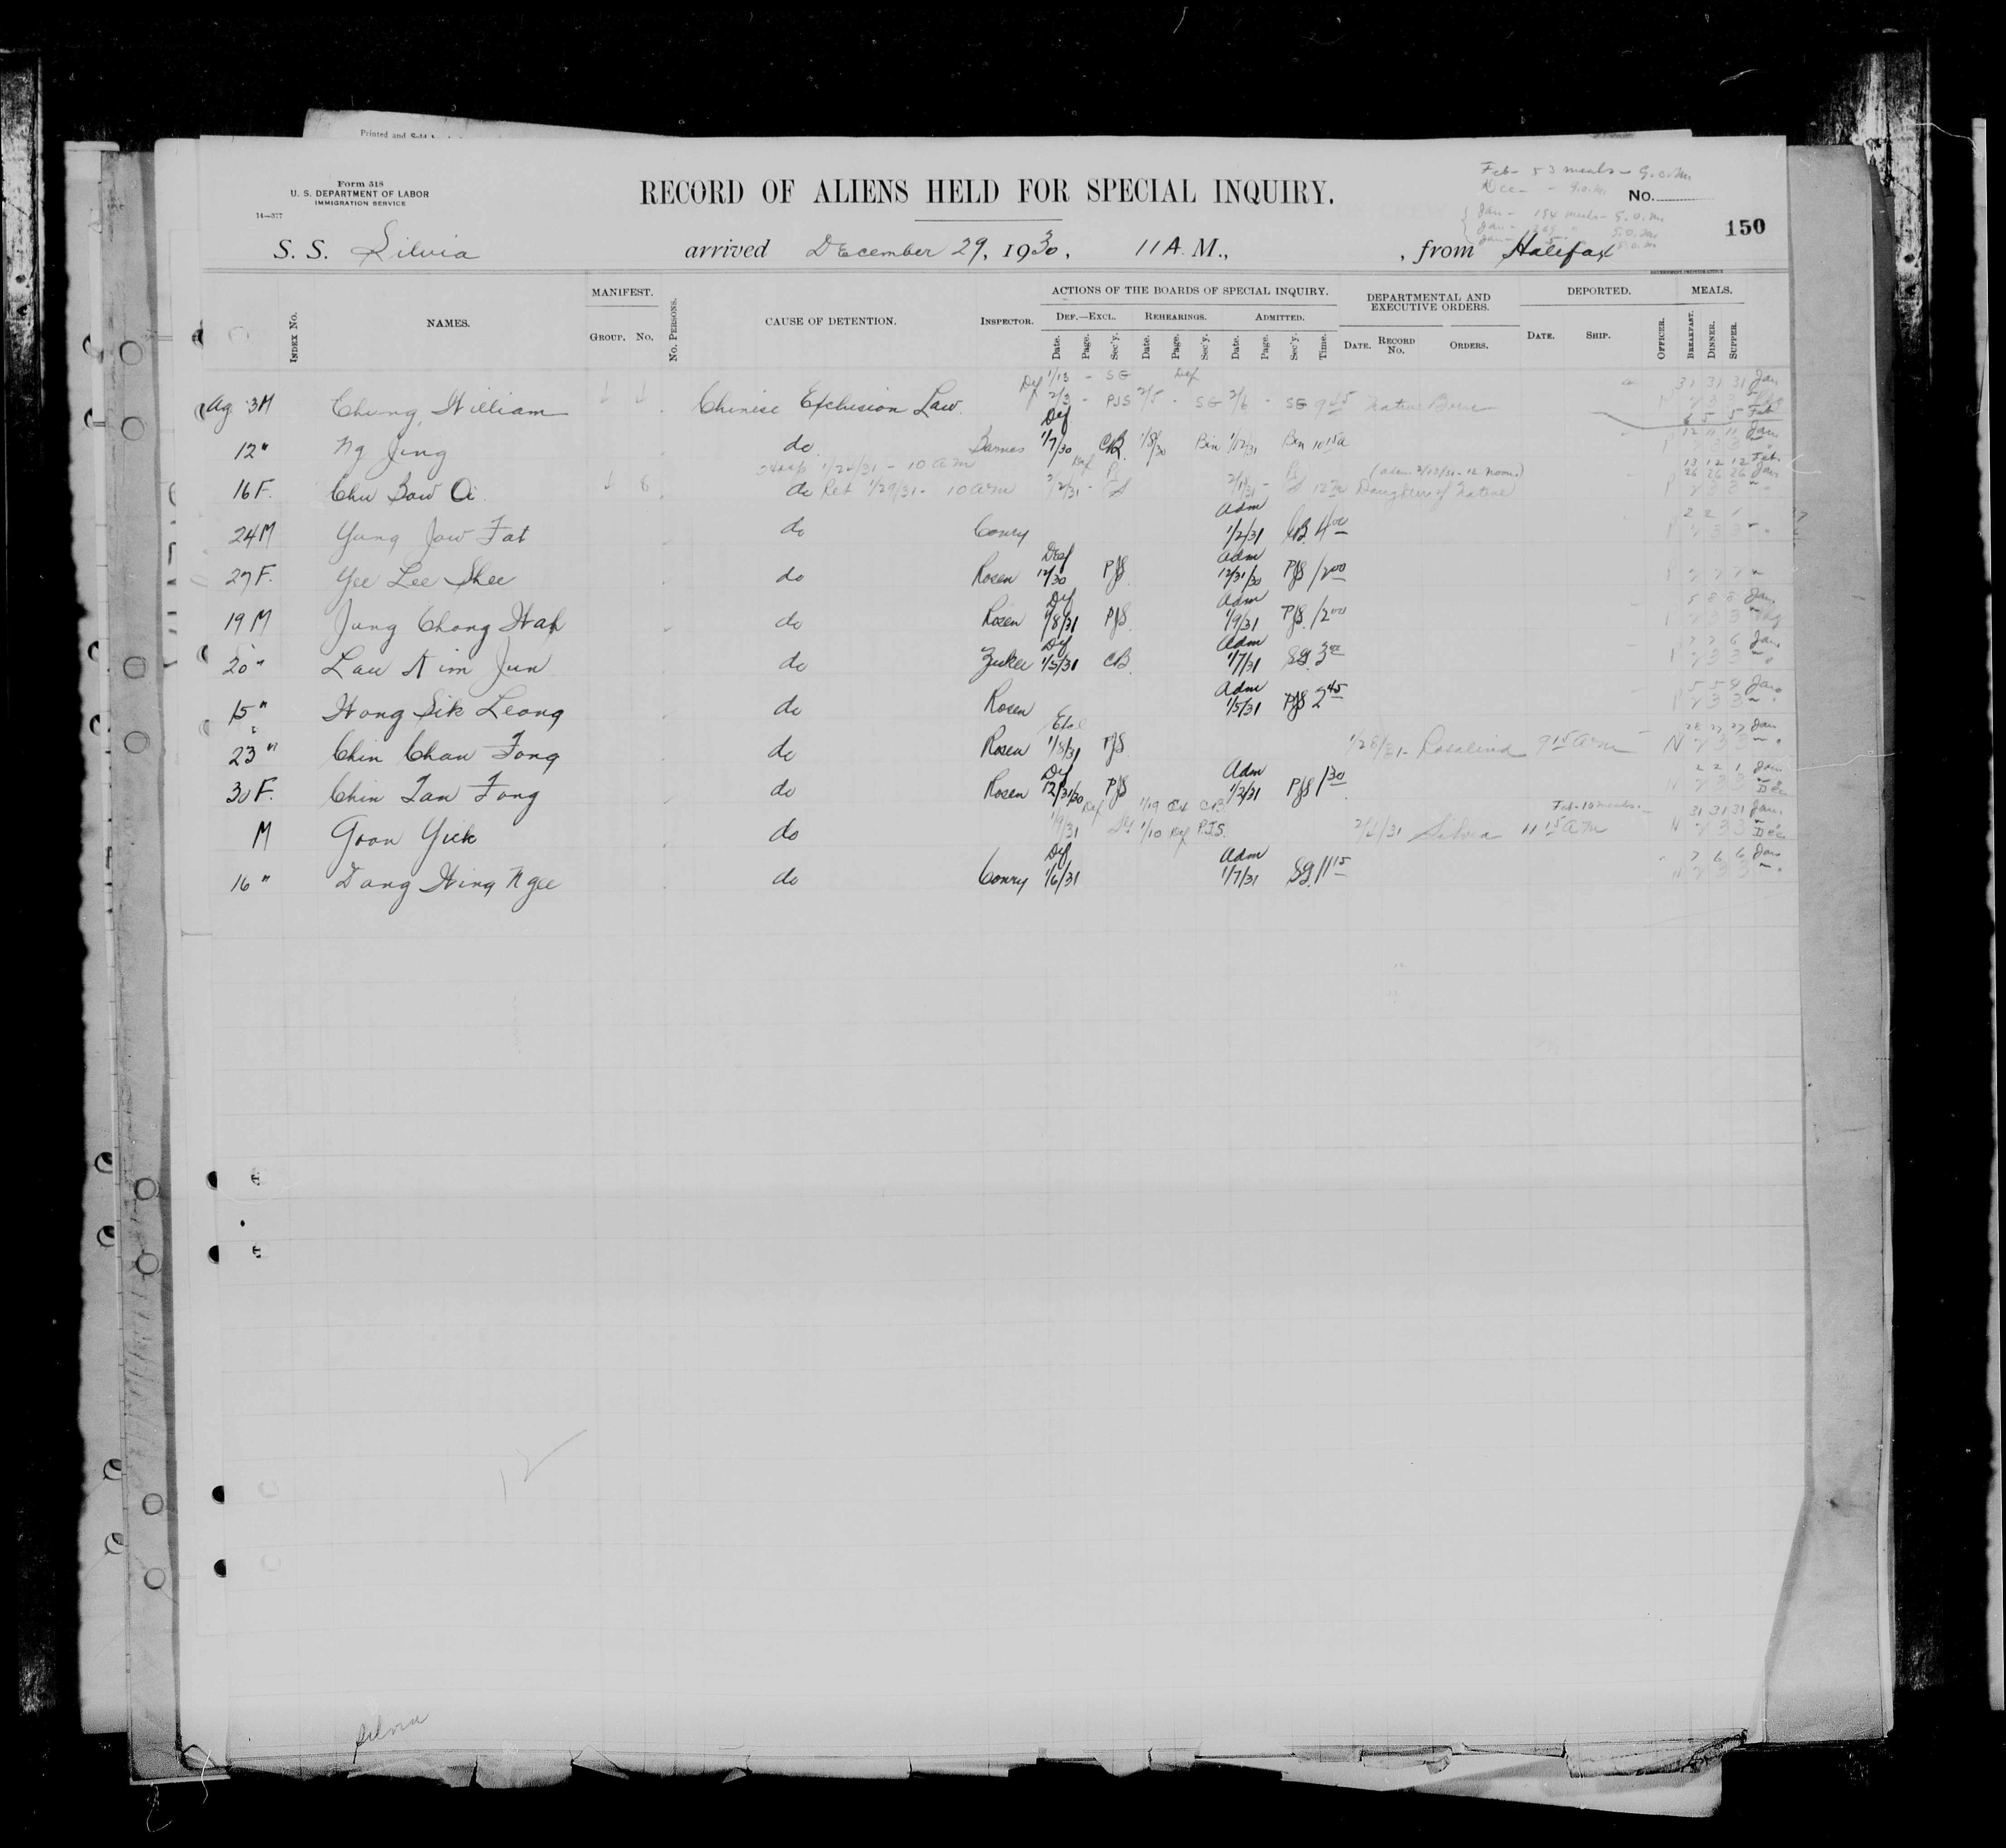 Printed and Sold
Form 518
U. S. DEPARTMENT OF LABOR
IMMIGRATION SERVICE
14—377
RECORD OF ALIENS HELD FOR SPECIAL INQUIRY.
Feb - 53 meals - G.O.M.
Dec - - G.O.M.
No.
Jan - 154 meals - G.O.M.
Jan - G.O.M.
Jan - G.O.M.
150
S. S. Silvia arrived December 29, 1930, 11 A. M., , from Halifax
INDEX No. NAMES. MANIFEST. GROUP. No. No. PERSONS. CAUSE OF DETENTION. INSPECTOR. ACTIONS OF THE BOARDS OF SPECIAL INQUIRY. DEPARTMENTAL AND EXECUTIVE ORDERS. DEPORTED. MEALS.
DEF.—EXCL. REHEARINGS. ADMITTED.
Date. Page. Sec'y. Date. Page. Sec'y. Date. Page. Sec'y. Time. DATE. RECORD No. ORDERS. DATE. SHIP. OFFICER. BREAKFAST. DINNER. SUPPER.
Def 1/13 - SG Def 31 31 31 Jan
Ag 3M Chung, William Chinese Exclusion Law. 2/3 - PJS 2/5 - SG 2/6 - SG 9 45 Native Born
6 5 5 Feb
Def 12 11 11 Jan
12 " Ng Jing do Barnes 1/7/30 CB. 1/8/30 Bin 1/12/31 Bin 10 15 A
1/26/31 - 10 am Def (adm. 2/13/31 - 12 noon) 13 12 12 Feb.
26 26 26 Jan
16 F. Chu Bow Oi 8 do Ret 1/29/31 - 10 am 2/2/31 - 12 Daughter of Native
Adm 2 2 1
24 M Yung Jow Fat do Conry 1/2/31 CB. 4 00
Def Adm
27 F. Yee Lee Shee do Rosen 12/30 PJS 12/31/30 PJS 12 00
Def Adm Jan.
19 M Jung Chong Hap do Rosen 1/8/31 PJS. 1/9/31 PJS. 12 00
Def Adm 7 7 6 Jan
20 " Lau Kim Jun do Zucker 1/5/31 CB 1/7/31 SG. 3 00
Adm 5 5 4 Jan.
15 " Wong Sik Leong do Rosen 1/5/31 PJS 2 45
Excl 28 27 27 Jan
23 " Chin Chan Fong do Rosen 1/8/31 PJS 1/28/31 - Rosalind 9 15 am N
Def Adm 2 2 1 Jan
30 F. Chin Tan Fong do Rosen 12/31/30 PJS 1/2/31 PJS 1 30
Def 1/19 Ex CB Feb - 10 meals - 31 31 31 Jan.
M Goon Yick do 1/9/31 SG 1/10 Def P.J.S. 2/4/31 Silvia 11 15 am N Dec
Def Adm 7 6 6 Jan
16 " Dang Hing Ngee do Conry 1/6/31 1/7/31 SG. 11 15
12
Silvia